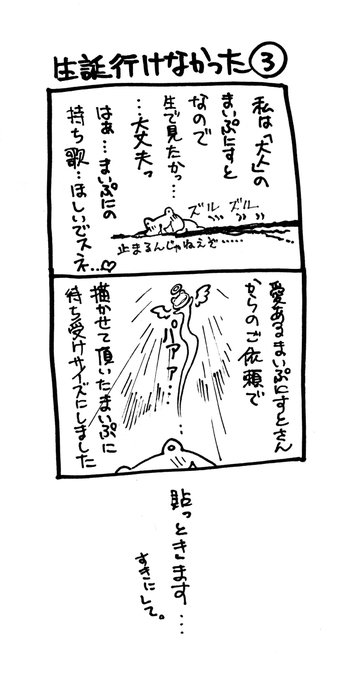 生誕行けなかった③
私は「大人」の
まいぷにすと
なので
生で見たかっ…
…大丈夫っ
はぁ…まいぷにの
持ち歌…ほしいでスネ…♡
ズル ズル
止まるんじゃねえぞ……
愛あるまいぷにすとさん
からのご依頼で
パアァァ…
描かせて頂いたまいぷに
待ち受けサイズにしました
貼っときます…
すきにして。